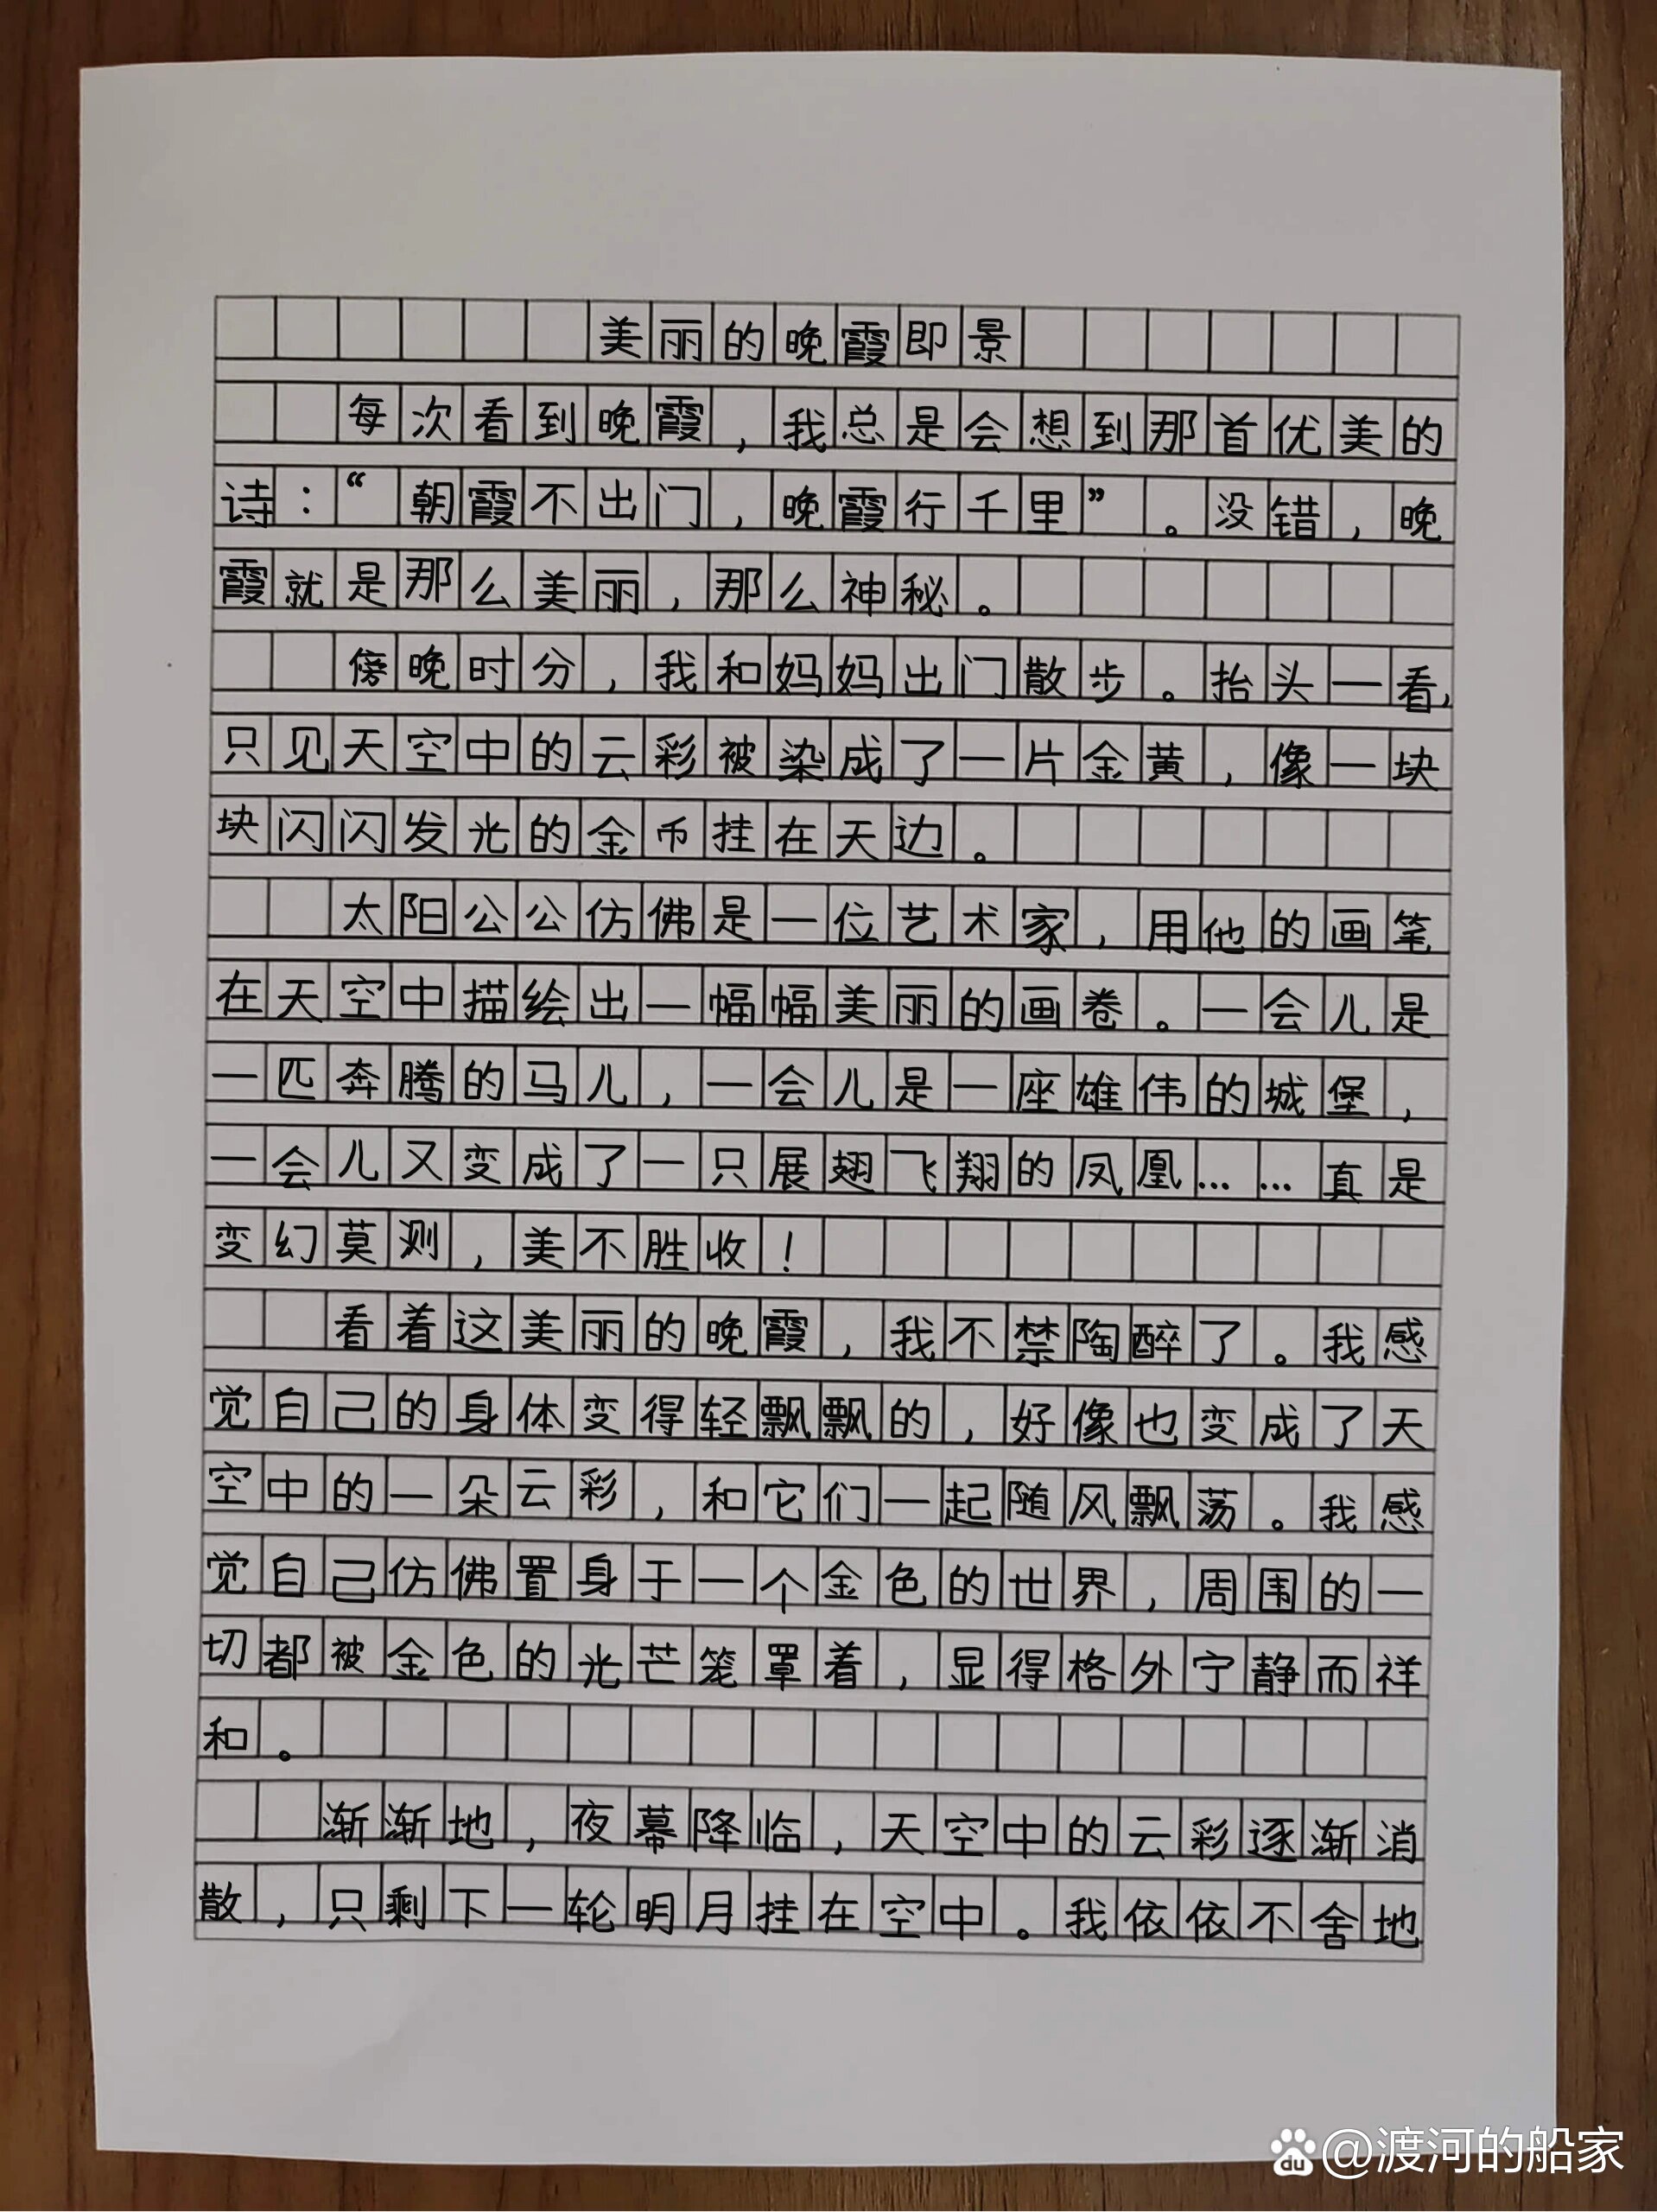 美丽的晚霞即景
每次看到晚霞，我总是会想到那首优美的
诗：“朝霞不出门，晚霞行千里”。没错，晚
霞就是那么美丽，那么神秘。
傍晚时分，我和妈妈出门散步。抬头一看，
只见天空中的云彩被染成了一片金黄，像一块
块闪闪发光的金币挂在天边。
太阳公公仿佛是一位艺术家，用他的画笔
在天空中描绘出一幅幅美丽的画卷。一会儿是
一匹奔腾的马儿，一会儿是一座雄伟的城堡，
一会儿又变成了一只展翅飞翔的凤凰……真是
变幻莫测，美不胜收！
看着这美丽的晚霞，我不禁陶醉了。我感
觉自己的身体变得轻飘飘的，好像也变成了天
空中的一朵云彩，和它们一起随风飘荡。我感
觉自己仿佛置身于一个金色的世界，周围的一
切都被金色的光芒笼罩着，显得格外宁静而祥
和。
渐渐地，夜幕降临，天空中的云彩逐渐消
散，只剩下一轮明月挂在空中。我依依不舍地
du @渡河的船家